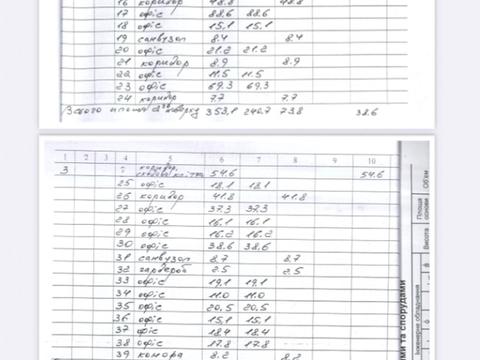 16 коридор 48.8 48.8
17 офіс 88.6 88.6
18 офіс 15,1 15,1
19 санвузол 8.4 8.4
20 офіс 21.2 21.2
21 коридор 8.9 8.9
22 офіс 11.5 11.5
23 офіс 69.3 69.3
24 коридор 7.7 7.7
Всього площа поверху 353,1 240.7 73.8 38.6
1 2 3 4 5 6 7 8 9 10
3 коридор, сходова клітка 54.6 54.6
25 офіс 18.1 18.1
26 коридор 41.8 41.8
27 офіс 37.3 37.3
28 офіс 16.1 16.1
29 офіс 16.2 16.2
30 офіс 38.6 38.6
31 санвузол 8.7 8.7
32 гардероб 2.5 2.5
33 офіс 19,1 19,1
34 офіс 11.0 11.0
35 офіс 20,5 20,5
36 офіс 15,1 15,1
37 офіс 18.4 18.4
38 офіс 17.8 17.8
39 комора 8.2 8.2
ми та спорудами
Інженерне обладнання
Висота
Площа основи
Об'єм